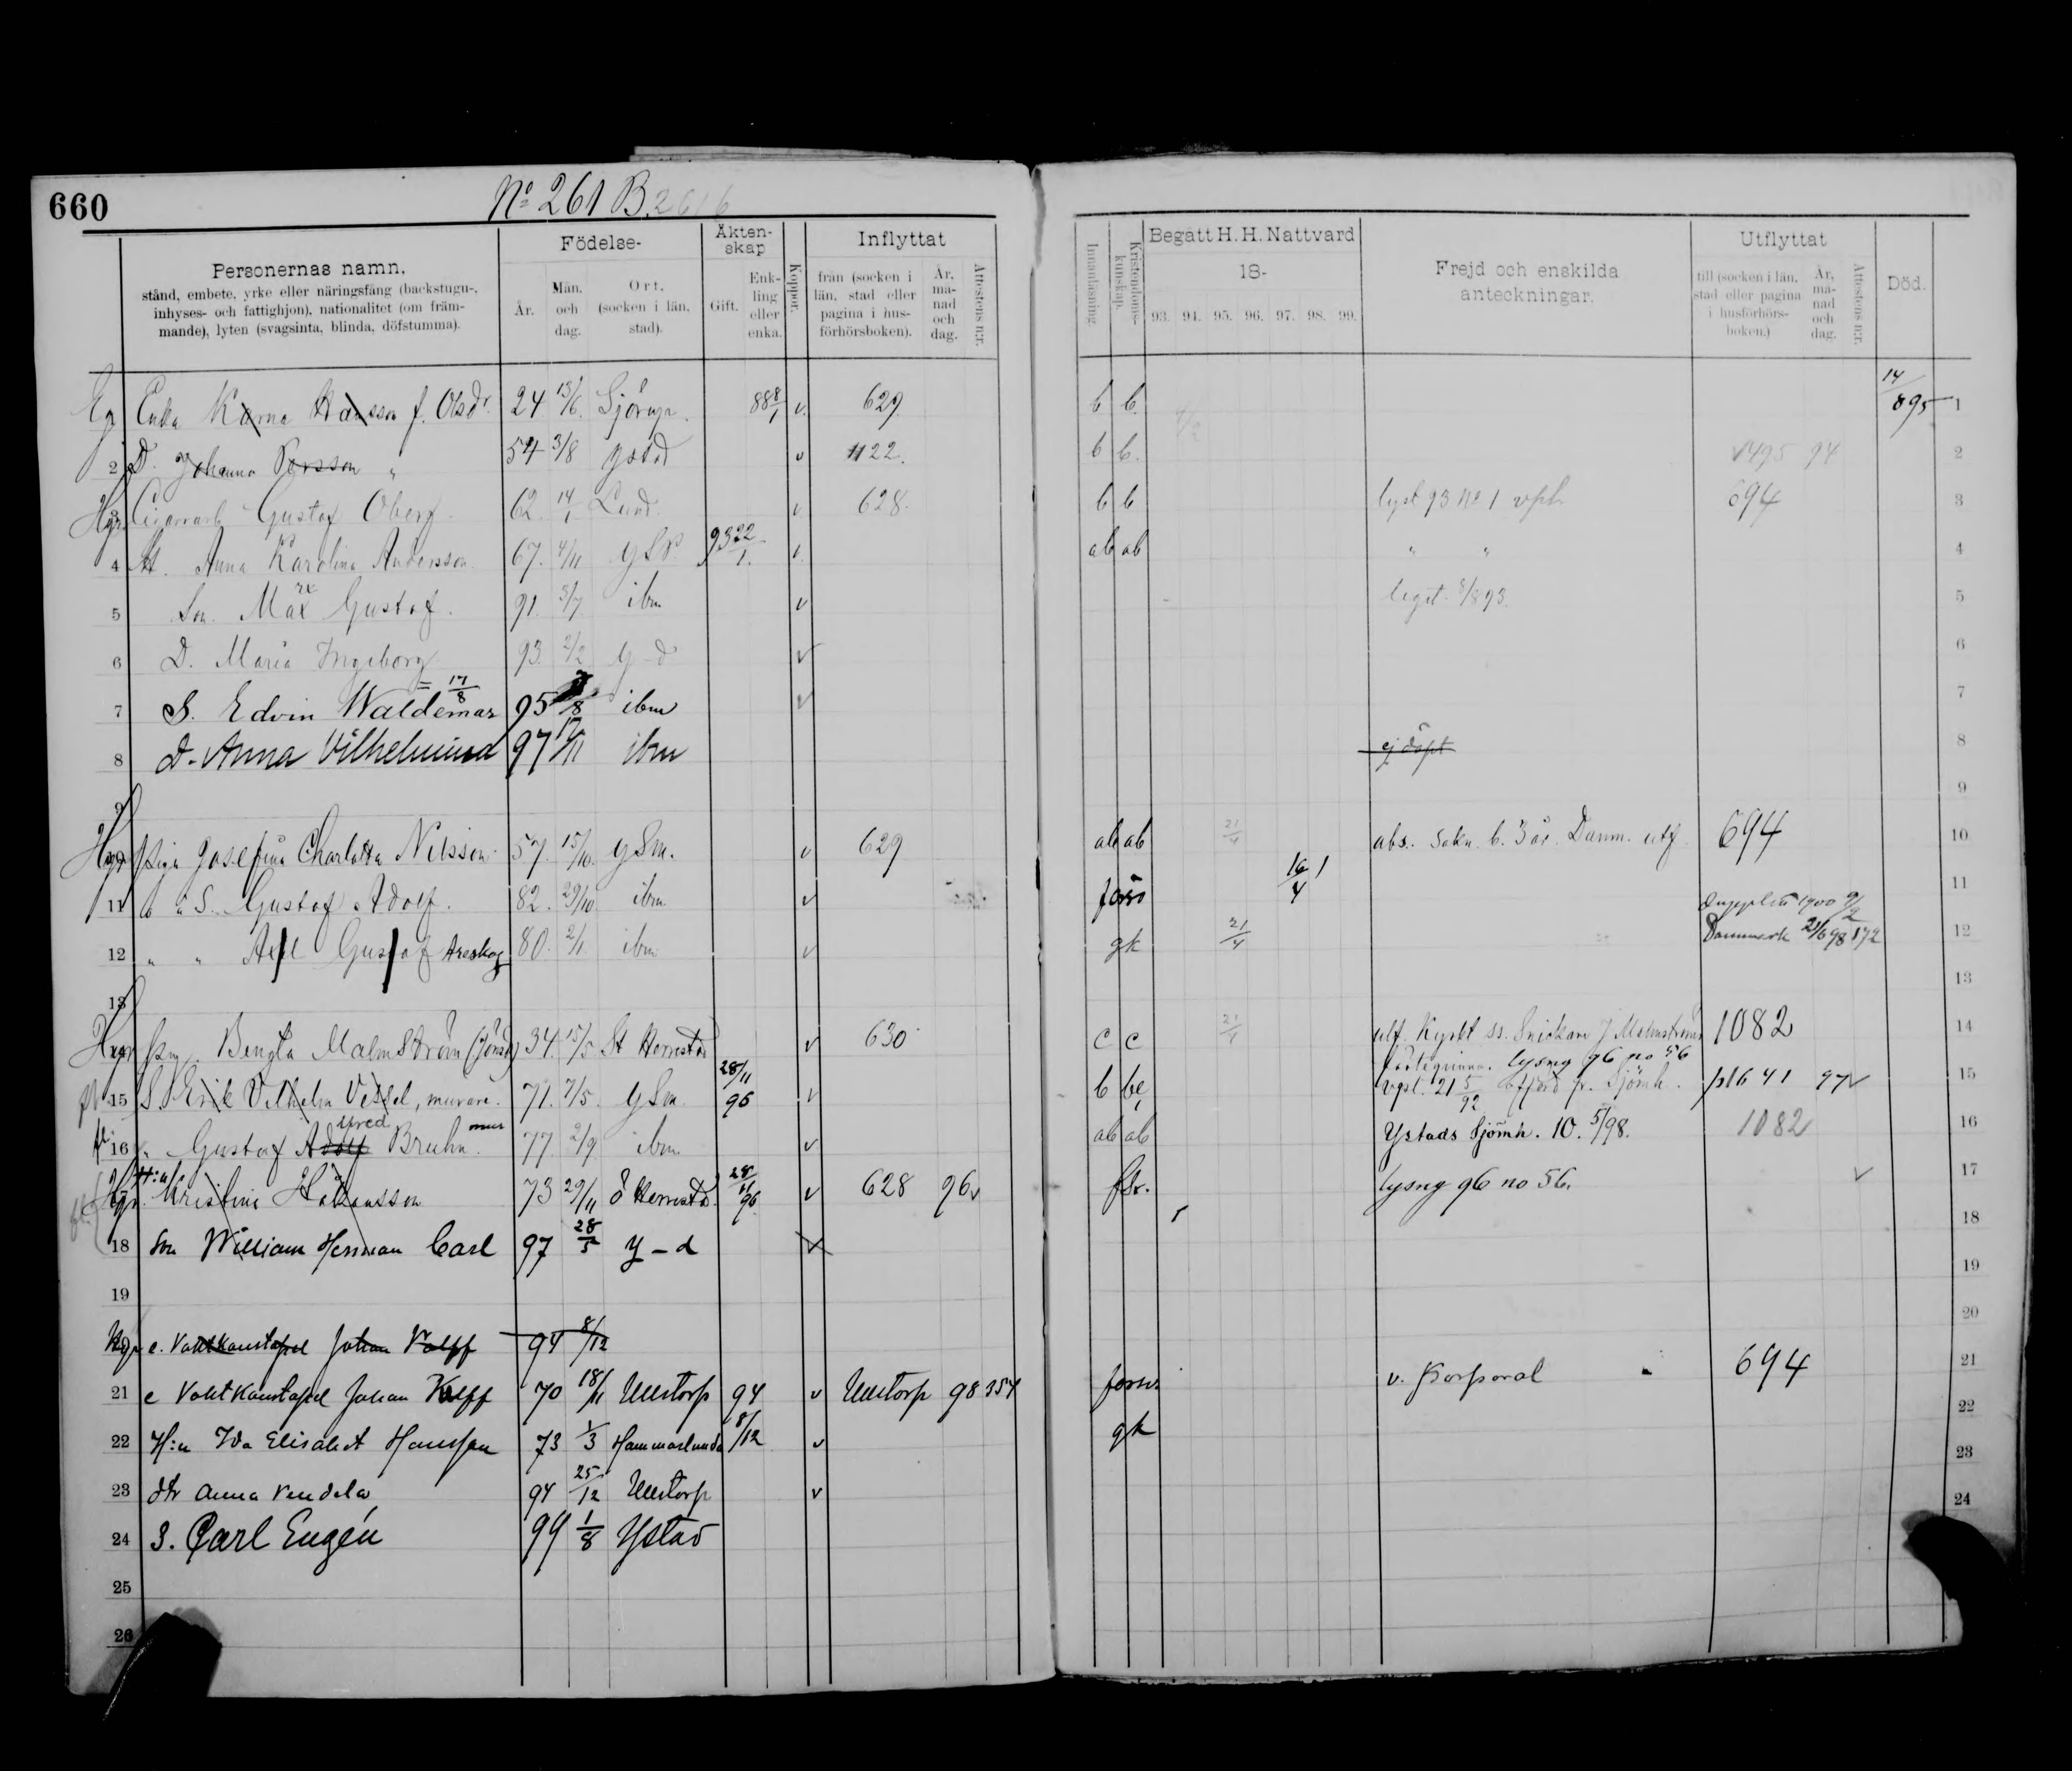 660
No 261 B. 261 b
Personernas namn,
stånd, embete, yrke eller näringsfång (backstugu-,
inhyses- och fattighjon), nationalitet (om främ-
mande), lyten (svagsinta, blinda, döfstumma).
Födelse-
År.
Mån.
och
dag.
Ort.
(socken i län,
stad).
Äkten-
skap
Gift.
Enk-
ling
eller
enka.
Koppor.
Inflyttat
från (socken i
län, stad eller
pagina i hus-
förhörsboken).
År,
må-
nad
och
dag.
Attestens n:r.
Innanläsning.
Kristendoms-
kunskap.
Begått H. H. Nattvard
18-
93. 94. 95. 96. 97. 98. 99.
Frejd och enskilda
anteckningar.
Utflyttat
till (socken i län,
stad eller pagina
i husförhörs-
boken.)
År,
må-
nad
och
dag.
Attestens n:r.
Död.
Eg Enka Karna Hansson f. Olsdr. 24 13/6 Sjörup. 88 8/1 v. 629 b b. 14/8 95 1
2 D. Johanna Persson " 54 3/8 Ystad v 1122. b b. 1495 94 2
Hgr Cigarrarb Gustaf Öberg 62. 14/1 Lund. v 628. b b lyst 93 No 1 vph 694 3
4 H. Anna Karolina Andersson 67. 4/11 93 22/1. v. ab ab " " 4
5 Son. Max Gustaf. 91. 3/7. ibm v legit. 8/8 93. 5
6 D. Maria Ingeborg 93. 2/2 Y-d v 6
7 S. Edvin Waldemar = 17/8 95 ibm v 7
8 D. Anna Vilhelmina 97 ibm ej döpt 8
9 9
Hgr Piga Josefina Charlotta Nilsson 57. 15/10. YSm. v 629 ab ab 21/4 abs. Sakn. b. 3 år. Danm. utf. 694 10
11 " " S. Gustaf Adolf. 82. 29/10 ibm v 16/4 1 1900 9/2 11
12 " " Axel Gustaf Areskog 80. 2/1. ibm v gk 21/4 Danmark 21/6 98 172 12
13 13
Hgr Bengta Malmström (Jönsd) 34. 15/5 St Herrestad v 630 c c 21/4 Snickare J Malmströms 1082 14
lysng 96 no 56
15 S. Erik Vilhelm Vessel, murare. 71. 7/5. YSm 28/11 96 v b be, vpl. 21 5/92 fr. Sjömh. pl 641 97 v 15
16 " Gustaf Adolf Alfred Bruhn. mur 77. 2/9 ibm v ab ab Ystads Sjömh. 10. 5/98. 1082 16
Hgr. H:u Kristina Håkansson 73 29/11 Ö Herrestd. 28/11 96 v 628 96 v lysng 96 no 56. v 17
18 Son William Herman Carl 97 28/5 Y-d v 18
19 19
Hgr e. Vaktkonstapel Johan Kalff 94 8/12 20
21 e Vaktkonstapel Johan Kalff 70 18/11 Ullstorp 94 v Ullstorp 98 354 v. Korporal 694 21
22 H:u Ida Elisabet Hansson 73 1/3 Hammarlunda 8/12 v gk 22
23 dtr Anna Vendela 94 25/12 Ullstorp v 23
24 S. Carl Eugén 99 1/8 Ystad 24
25
26